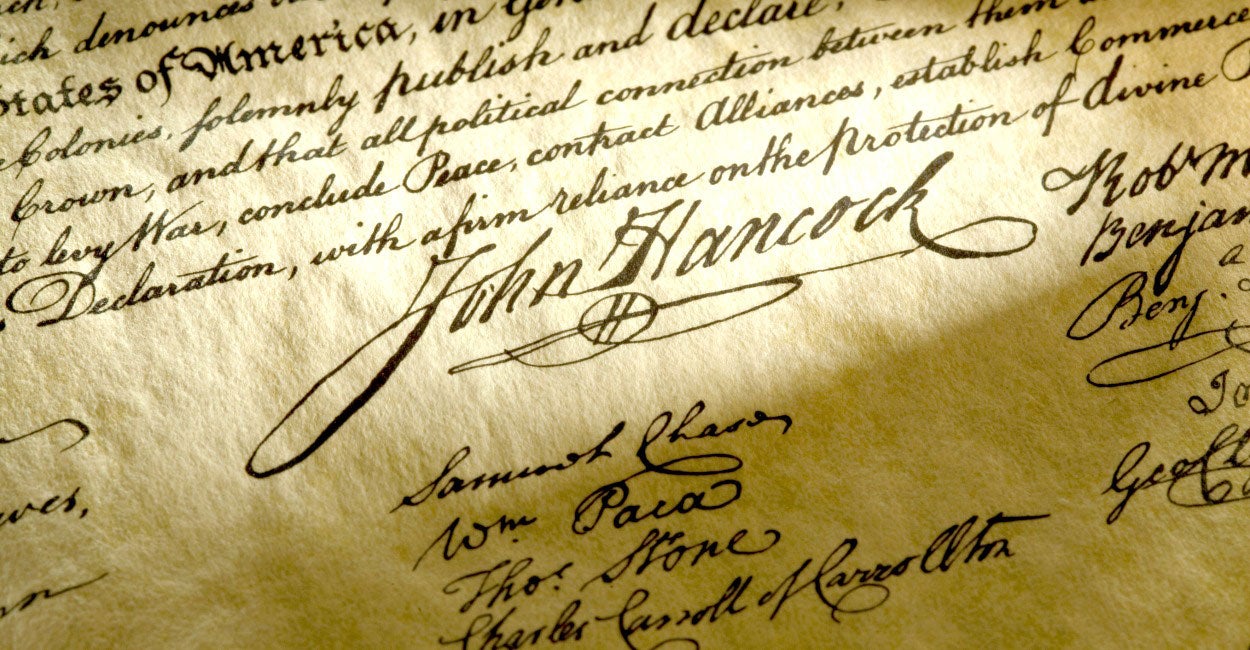 ich denounces
States of America, in Gen
Colonies, solemnly publish and declare,
Crown, and that all political connection between them
to levy War, conclude Peace, contract Alliances, establish Commerce
Declaration, with a firm reliance on the protection of divine P
John Hancock
Samuel Chase
Wm Paca
Thos. Stone
Charles Carroll of Carrollton
Robt M
Benjam
Benj.
Jo
Geo Cl